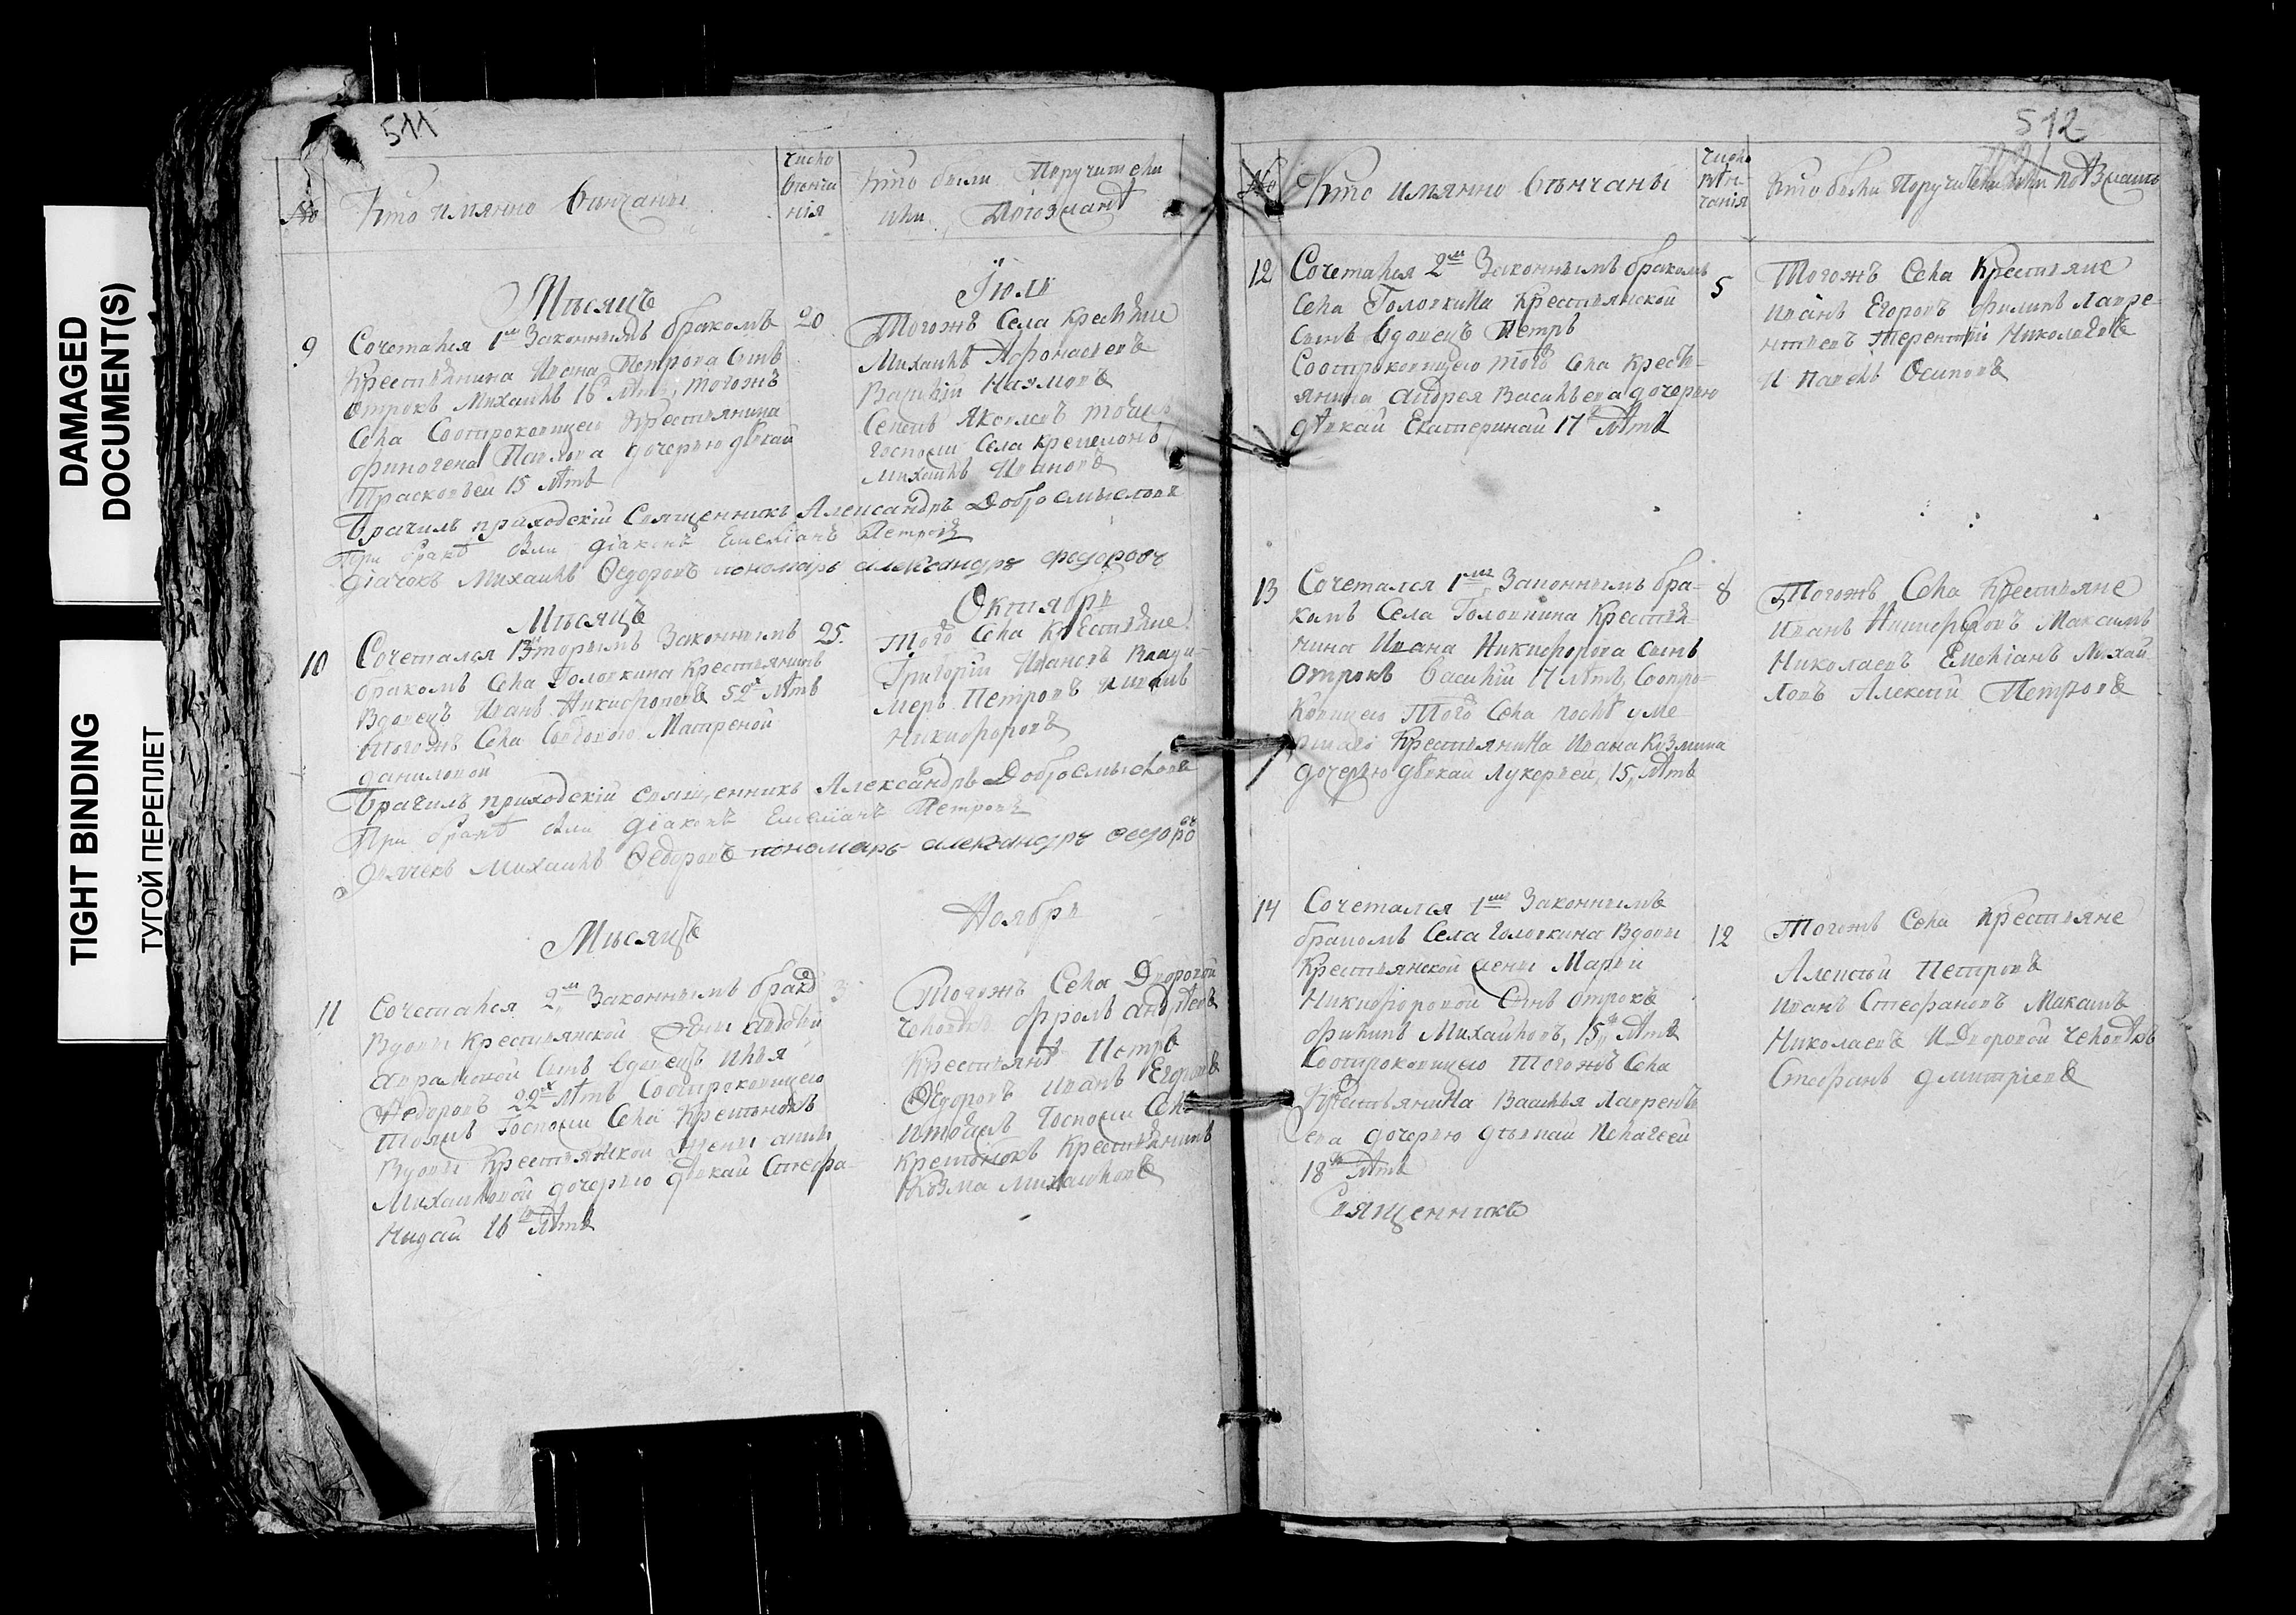 DAMAGED
DOCUMENT(S)
TIGHT BINDING
ТУГОЙ ПЕРЕПЛЕТ
511
№
Кто имянно венчаны
число
венча
нія
Кто были Поручители
или Поѣзжанѣ
Мѣсяцъ
Іюль
9
Сочетался 1м Законнымъ бракомъ
20
Крестьянина Ивана Петрова Сынъ
отрокъ Михаилъ 16 лѣтъ, тогожъ
Села Соотроковицею Крестьянина
финогена Павлова дочерью дѣвкай
Прасковьей 15 лѣтъ
Тогожъ Села крестьяне
Михаилъ Афонасьевъ
Василій Наумовъ
Семенъ Яковлевъ тоеж
Госпожи Села
Михаилъ Ивановъ
Врачилъ приходскій Священникъ Александръ Добросмысловъ
При бракѣ были діаконъ Емеліанъ Петровъ
діачокъ Михаилъ Ѳедоровъ пономарь александръ федоровъ
Мѣсяцъ
Октябрь
10
Сочетался Вторымъ Законнымъ
25.
бракомъ Села Головкина крестьянинъ
Вдовецъ Иванъ Никифоровъ 52х лѣтъ
тогожъ Села Матреной
даниловой
Того Села Крестьяне
Григорій Ивановъ Влади-
меръ Петровъ Иванъ
Никифоровъ
Врачилъ приходскій священникъ Александръ Добросмысловъ
При бракѣ были діаконъ Емеліанъ Петровъ
Дьячекъ Михаилъ Ѳедоровъ пономарь александръ ѳедоровъ
Мѣсяцъ
Ноябрь
11
Сочетался 2м Законнымъ брако
3
Вдовы Крестьянской Жены авдотьи
Сынъ вдовецъ Илья
Ѳедоровъ 22х лѣтъ Соотроковицею
Госпожи Села
Вдовы Крестьянской Жены анны
Михайловой дочерью дѣвкай Стефа-
нидай 16 лѣтъ
Тогожъ Села Дворовой
человѣкъ фролъ андрѣевъ
Крестьянѣ Петръ
Ѳедоровъ Иванъ Егоровъ
Госпожи Села
Крестьянинъ
Козма Михайловъ
512
№
Кто имянно вѣнчаны
число
вѣн-
чанія
Кто были Поручители или поѣзжанѣ
12
Сочетался 2м Законнымъ бракомъ
5
Села Головкина Крестьянской
Сынъ вдовецъ Петръ
Соотроковицею того Села Кресть-
янина Андрея Васильева дочерью
дѣвкай Екатеринай 17 лѣтъ
Тогожъ Села Крестьяне
Иванъ Егоровъ филипъ Лавре-
нтьевъ Терентій Николаевъ
И Павелъ Осиповъ
13
Сочетался 1мъ Законнымъ бра-
8
комъ Села Головкина Крестья-
нина Ивана Никифорова сынъ
отрокъ Василій 17 лѣтъ, Соотро-
ковицею того Села послѣ уме-
ршаго Крестьянина Ивана Козмина
дочерью дѣвкай Лукерьей, 15, лѣтъ
Тогожъ Села Крестьяне
Иванъ Никифоровъ Максимъ
Николаевъ Емеліанъ Михай-
ловъ Алексій Петровъ
14
Сочетался 1мъ Законнымъ
12
бракомъ Села Головкина Вдовы
Крестьянской жены Марьи
Никифоровой Сынъ отрокъ
филипъ Михайловъ, 15, лѣтъ
Соотроковицею Тогожъ Села
Крестьянина Василья Лаврентье-
ева дочерью дѣвкай Пелагеей
18 лѣтъ
Священникъ
Тогожъ Села Крестьяне
Алексій Петровъ
Иванъ Стефановъ Максимъ
Николаевъ И Дворовой человѣкъ
Стефанъ дмитріевъ